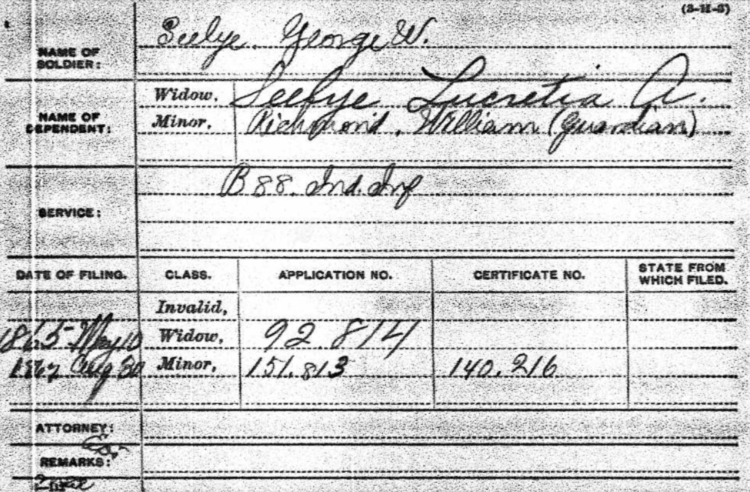 (3-11-3)
NAME OF SOLDIER: Seelye, George W.
NAME OF DEPENDENT: Widow, Seelye Lucretia A.
Minor, Richmond, William (Guardian)
SERVICE: B 88. Ind. Inf
DATE OF FILING. CLASS. APPLICATION NO. CERTIFICATE NO. STATE FROM WHICH FILED.
Invalid,
1865 May 10 Widow, 92 814
1867 Aug 30 Minor, 151.813 140.216
ATTORNEY:
REMARKS: